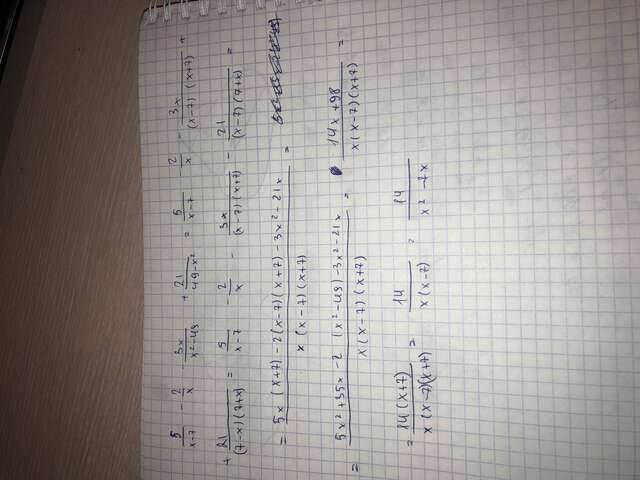 5/(x-7) - 2/x - 3x/(x²-49) + 21/(49-x²) = 5/(x-7) - 2/x - 3x/((x-7)(x+7)) +
+ 21/((7-x)(7+x)) = 5/(x-7) - 2/x - 3x/((x-7)(x+7)) - 21/((x-7)(7+x)) =
= (5x(x+7)-2(x-7)(x+7)-3x²-21x)/(x(x-7)(x+7)) =
= (5x²+35x-2(x²-49)-3x²-21x)/(x(x-7)(x+7)) = (14x+98)/(x(x-7)(x+7)) =
= 14(x+7)/(x(x-7)(x+7)) = 14/(x(x-7)) = 14/(x²-7x)